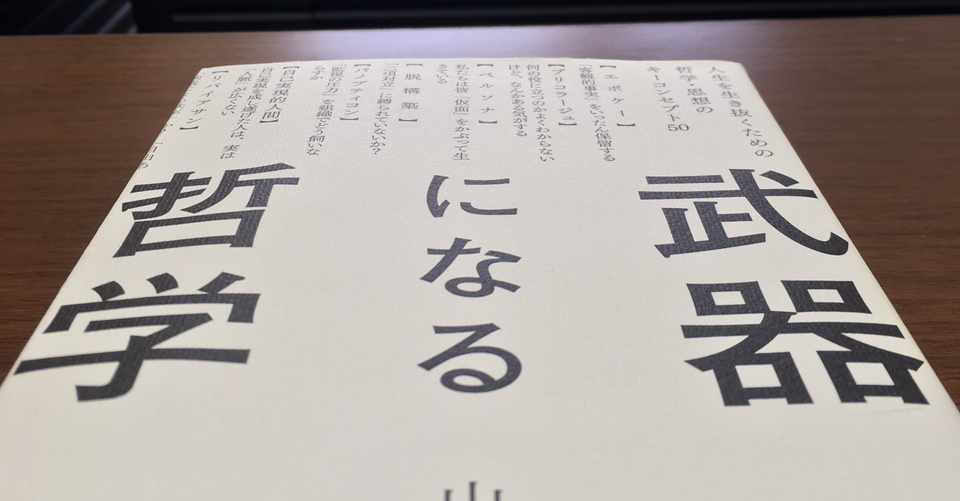 人生を生き抜くための
哲学・思想の
キーコンセプト50
【エポケー】
「客観的事実」をいったん保留する
【ブリコラージュ】
何の役に立つのかよくわからない
けど、なんかある気がする
【ペルソナ】
私たちは皆「仮面」をかぶって生
きている
【脱構築】
「二項対立」に縛られていないか？
【パノプティコン】
「監視の圧力」を組織でどう飼いな
らすか
【自己実現的人間】
自己実現を成し遂げた人は、実は
“人脈”が広くない
【リバイアサン】
武器
になる
哲学
山